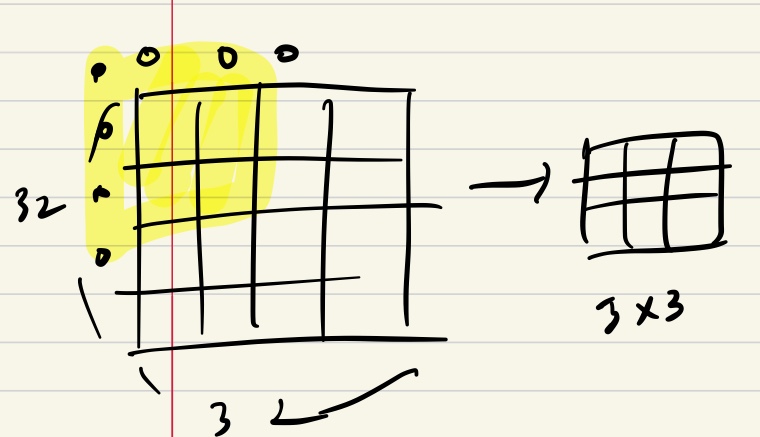 0 0 0 0
0
0
0
32
→
3 × 3
32